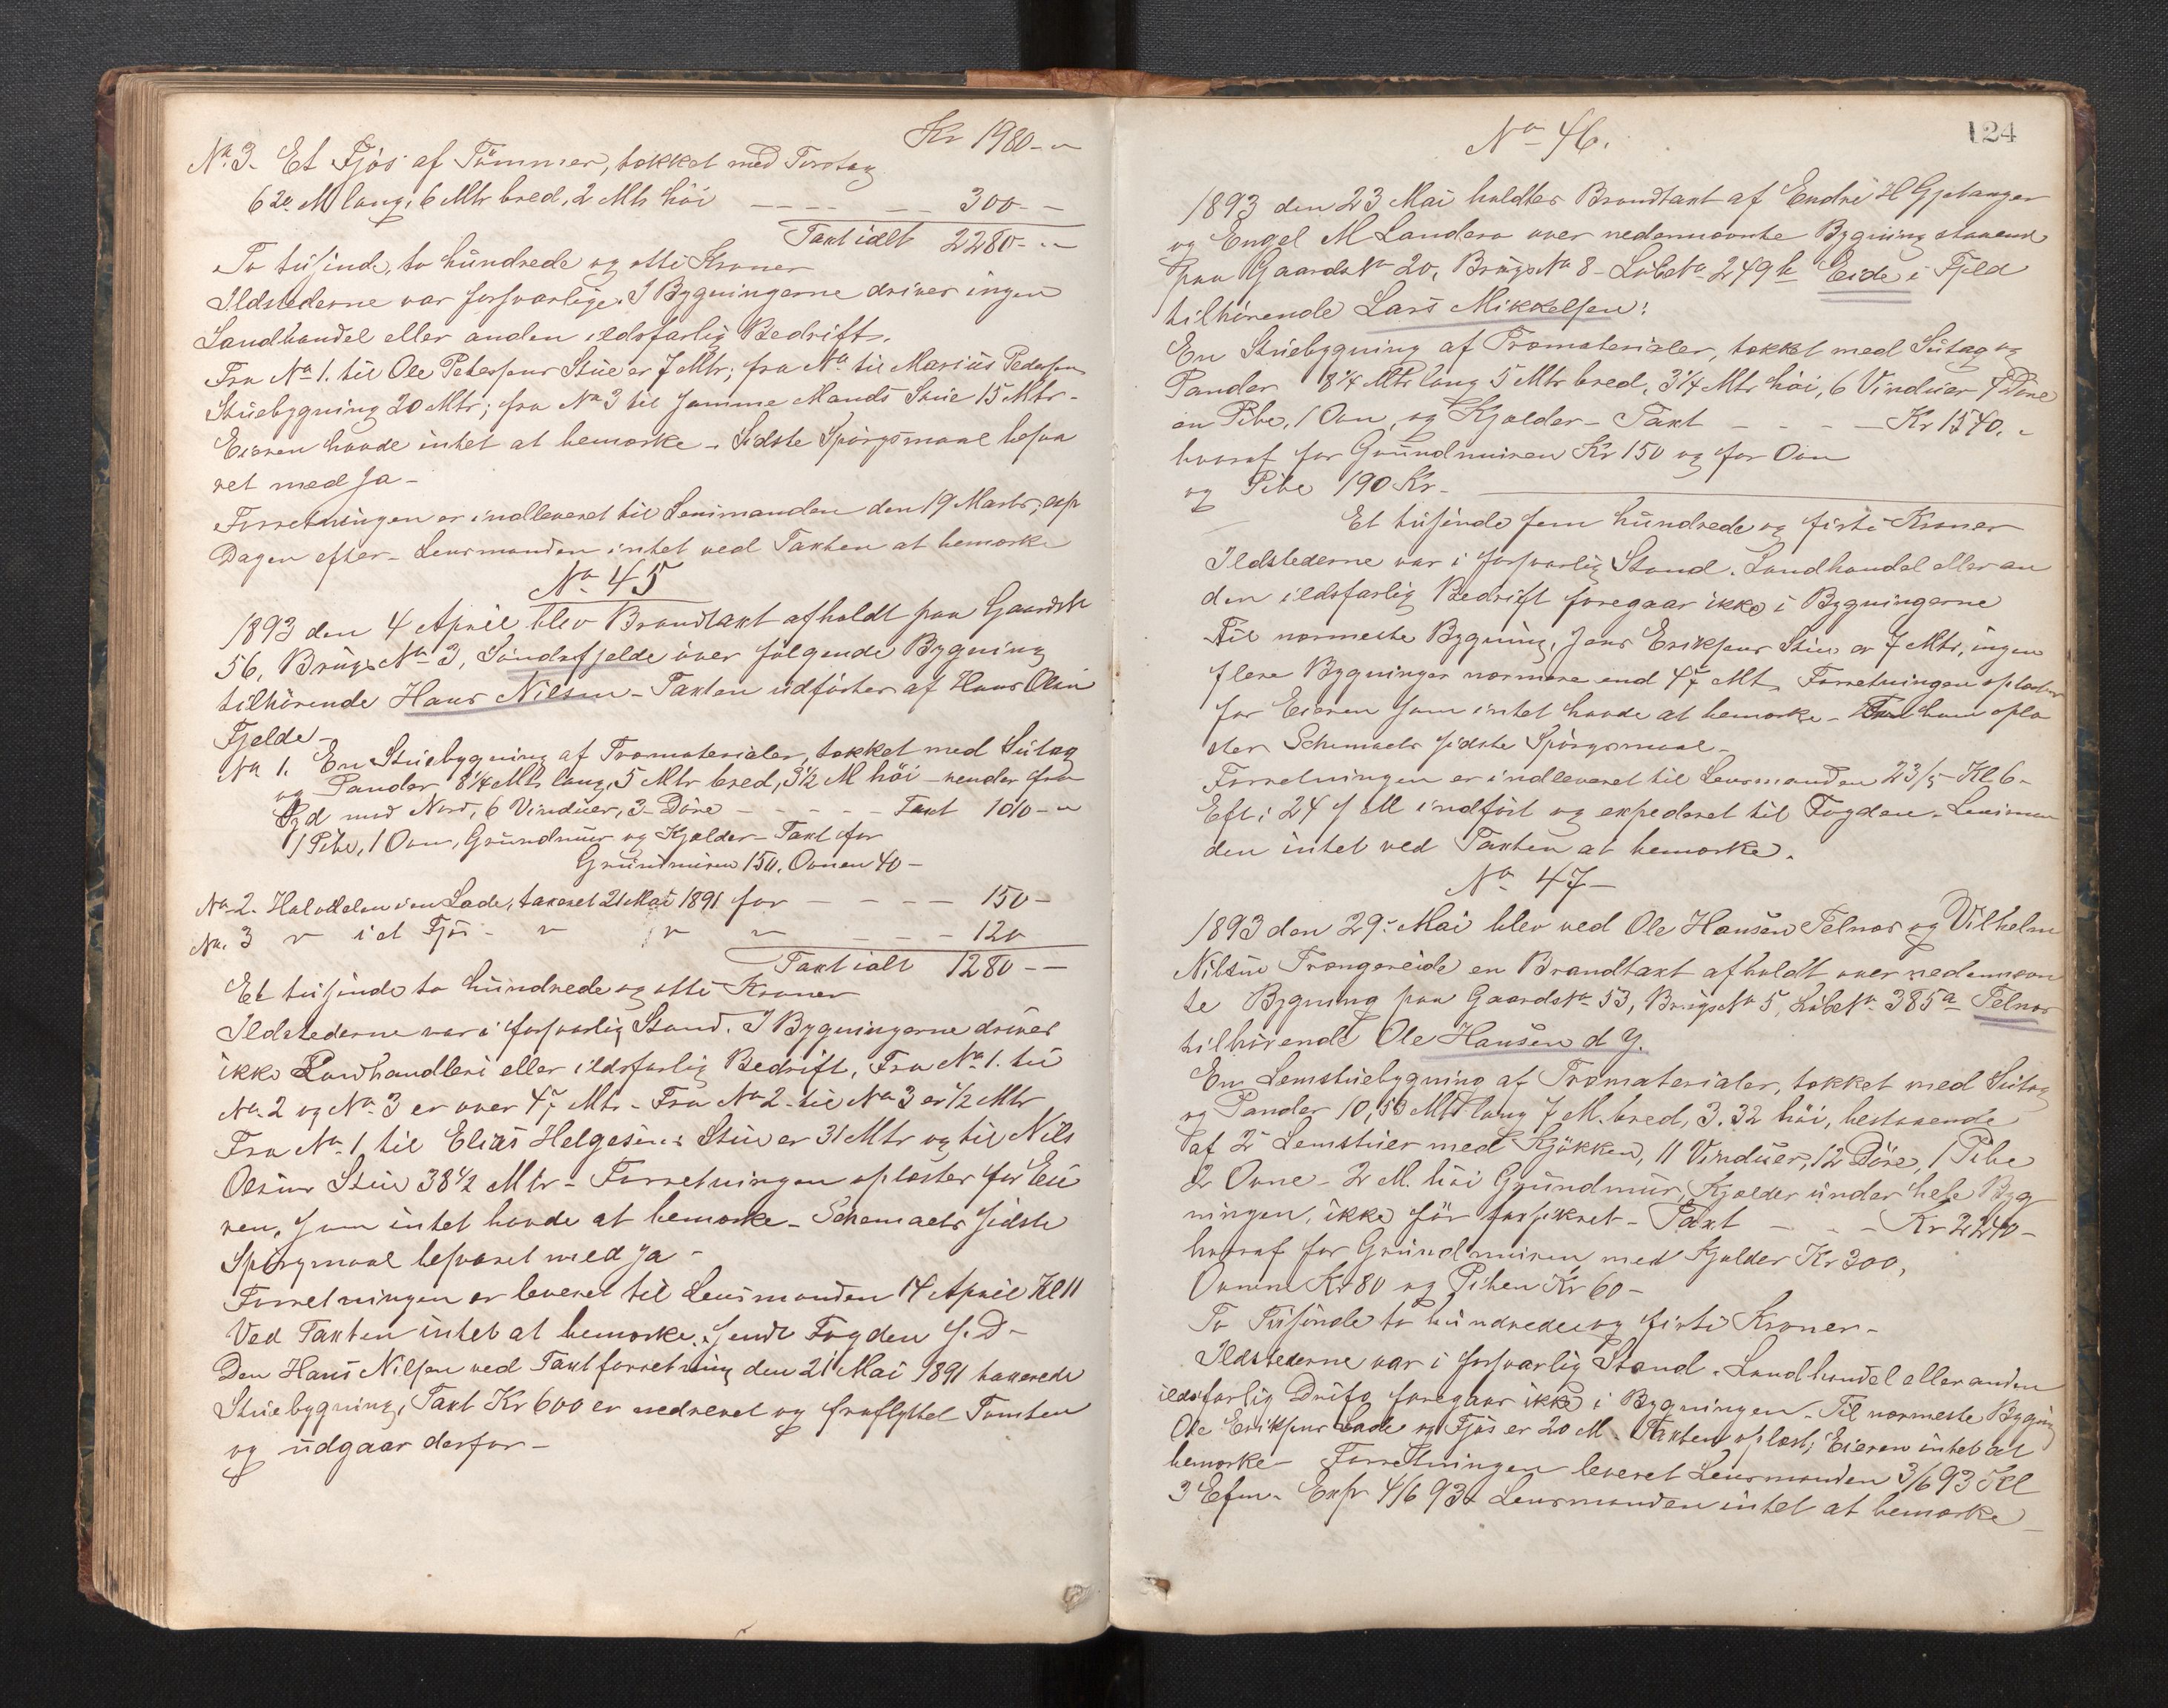 Kr 1980 - "
No 3. Et Fjøs af Tømmer, tækket med Torvtag
6 20 M lang, 6 Mtr bred, 2 Mtr høi - - - - - 300 - -
Taxt ialt 2280 - "
To tusinde, to hundrede og otti Kroner
Ildstederne var forsvarlige. I Bygningerne drives ingen
Landhandel eller anden ildsfarlig Bedrift.
Fra No 1. til Ole Petersens Stue er 7 Mtr; fra No til Marius Pedersens
Stuebygning 20 Mtr; fra No 3 til samme Mands Stue 15 Mtr -
Eieren havde intet at bemærke - Sidste Spørgsmaal besva
ret med Ja -
Forretningen er indleveret til Lensmanden den 19 Marts, exp
Dagen efter - Lensmanden intet ved Taxten at bemærke
No 45
1893 den 4 April blev Brandtaxt afholdt paa Gaards No
56, Brugs No 3, Søndrefjelde over følgende Bygning
tilhørende Hans Nilsen - Taxten udførtes af Hans Olsen
Fjelde -
No 1. En Stuebygning af Træmaterialer, tækket med Sutag
og Pander 8 1/4 Mtr lang, 5 Mtr bred, 3 1/2 M høi - vender fra
Syd mod Nord, 6 Vinduer, 3 Døre - - - - - Taxt 1010 - "
1 Pibe, 1 Ovn, Grundmur og Kjælder - Taxt for
Grundmuren 150. Ovnen 40 -
No 2. Halvdelen i en Lade, taxeret 21 Mai 1891 for - - - - 150 -
No. 3 " i et Fjøs - " " " - - - 120
Taxt ialt 1280 - -
Et tusinde to hundrede og otti Kroner
Ildstederne var i forsvarlig Stand. I Bygningerne drives
ikke Landhandleri eller ildsfarlig Bedrift, Fra No 1. til
No 2 og No 3 er over 47 Mtr - Fra No 2 til No 3 er 1/2 Mtr
Fra No 1 til Elias Helgesens Stue er 31 Mtr og til Nils
Olsens Stue 38 1/2 Mtr - Forretningen oplæstes for Eie
ren, som intet havde at bemærke - Schemaets sidste
Spørgmaal besvaret med Ja -
Forretningen er leveret til Lensmanden 14 April Kl 11
Ved Taxten intet at bemærke, sendt Fogden s. D -
Den Hans Nilsen ved Taxtforretning den 21 Mai 1891 taxerede
Stuebygning, Taxt Kr 600 er nedrevet og fraflyttet Tomten
og udgaar derfor -
124
No 46.
1893 den 23 Mai holdtes Brandtaxt af Endre H Gjetanger
og Engel M Landero over nedennævnte Bygning staaende
paa Gaards No 20, Brugs No 8 - Løbe No 249 h Eide i Fjeld
tilhørende Lars Mikkelsen:
En Stuebygning af Træmaterialer, tækket med Sutag og
Pander 8 1/4 Mtr lang 5 Mtr bred, 3 1/4 Mtr høi, 6 Vinduer 4 Døre
en Pibe, 1 Ovn, og Kjælder - Taxt - - - - Kr 1540. "
hvoraf for Grundmuren Kr 150 og for Ovn
og Pibe 190 Kr -
Et tusinde fem hundrede og firti Kroner
Ildstederne var i forsvarlig Stand. Landhandel eller an
den ildsfarlig Bedrift foregaar ikke i Bygningerne
Til nærmeste Bygning, Jens Eriksens Stue er 7 Mtr, ingen
flere Bygninger nærmere end 47 Mt. Forretningen oplæstes
for Eieren som intet havde at bemærke - ham oplæ
stes Schemaets sidste Spørgsmaal -
Forretningen er indleveret til Lensmanden 23/5 - Kl 6 -
Eft; 24 s M indført og expederet til Fogden. Lensman
den intet ved Taxten at bemærke.
No 47 -
1893 den 29 Mai blev ved Ole Hansen Telnæs og Vilhelm
Nilsen Trængereide en Brandtaxt afholdt over nedennævn
te Bygning paa Gaards No 53, Brugs No 5, Løbe No 385 a Telnæs
tilhørende Ole Hansen d Y.
En Lemstuebygning af Træmaterialer, tækket med Sutag
og Pander 10,50 Mtr lang 7 M. bred, 3.32 høi, bestaaende
af 2 Lemstuer med Kjøkken, 11 Vinduer, 12 Døre, 1 Pibe
2 Ovne - 2 M. høi Grundmur, Kjælder under hele Byg
ningen, ikke før forsikret - Taxt - - - Kr 2240 -
hvoraf for Grundmuren med Kjælder Kr 300,
Ovnene Kr 80 og Piben Kr 60 -
To Tusinde to hundrede og firti Kroner -
Ildstederne var i forsvarlig Stand. Landhandel eller anden
ildsfarlig Drift foregaar ikke i Bygningen - Til nærmeste Bygning
Ole Eriksens Lade og Fjøs er 20 M - Taxten oplæst; Eieren intet at
bemærke - Forretningen leveret Lensmanden 3/6 93 Kl
3 Efm. Exp 4/6 93 Lensmanden intet at bemærke -